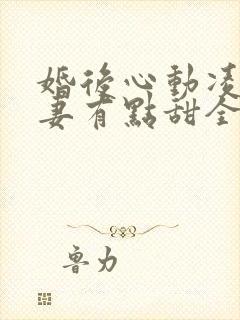 婚後心動凌
妻有點甜全
魯力